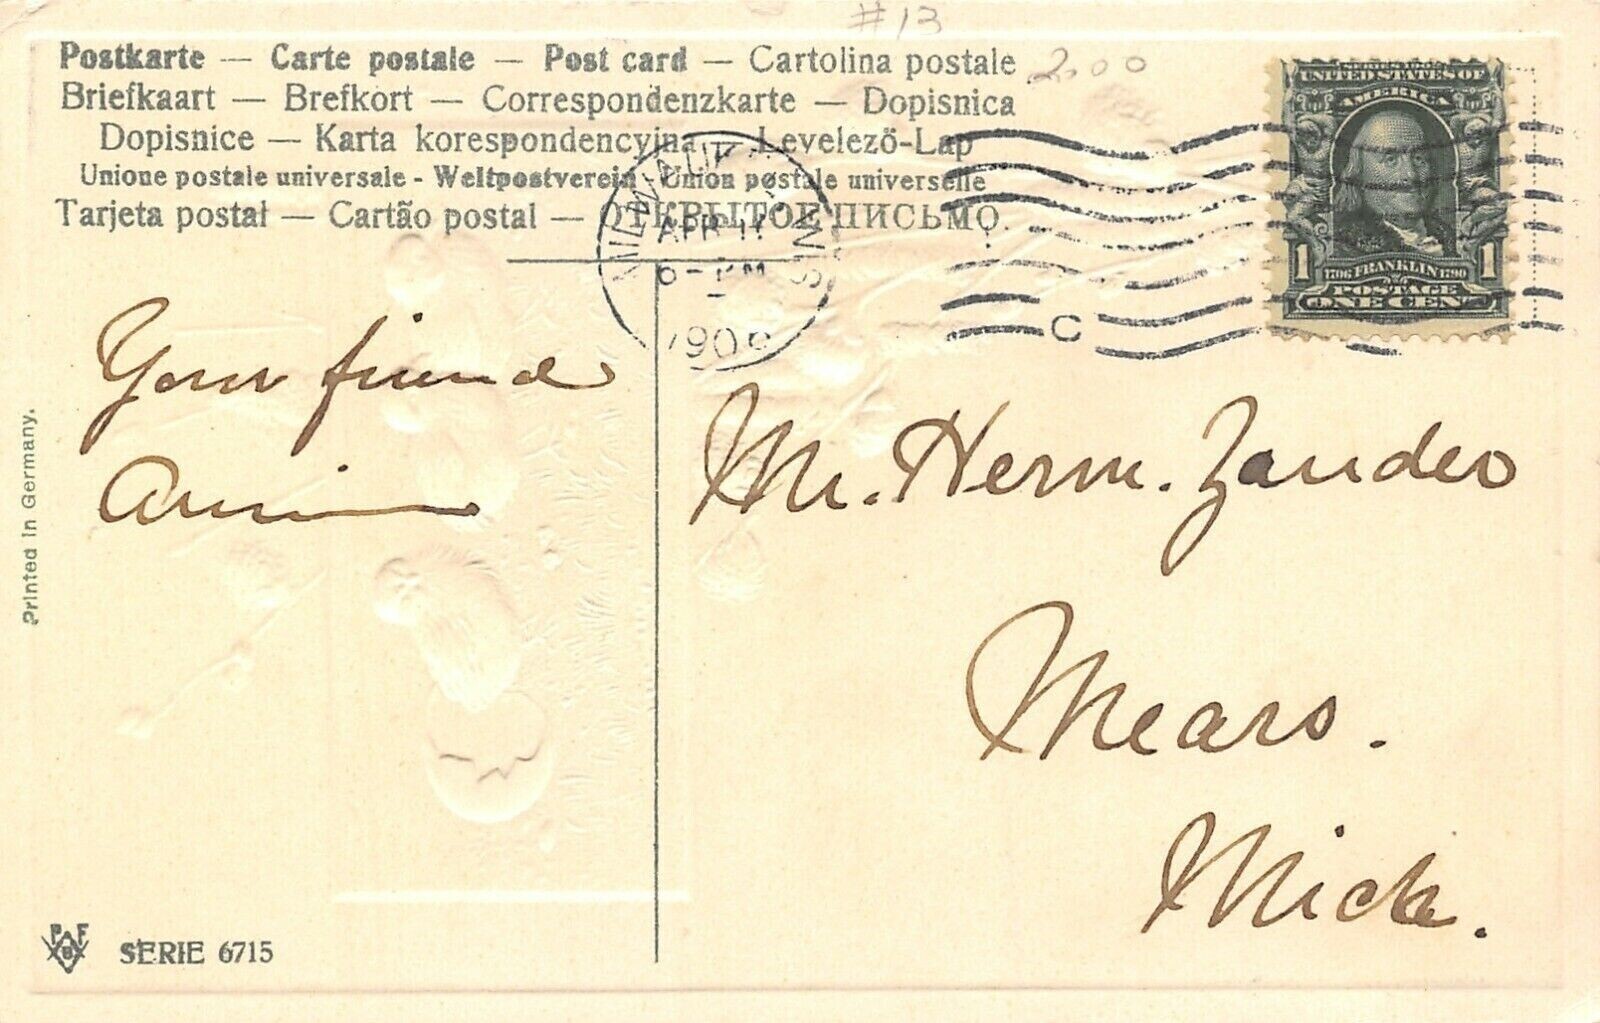 #13
2.00
Postkarte — Carte postale — Post card — Cartolina postale
Briefkaart — Brefkort — Correspondenzkarte — Dopisnica
Dopisnice — Karta korespondencyjna — Levelező-Lap
Unione postale universale - Weltpostverein - Union postale universelle
Tarjeta postal — Cartão postal — ОТКРЫТОЕ ПИСЬМО.
UNITED STATES OF
AMERICA
1 1706 FRANKLIN 1790 1
POSTAGE
ONE CENT
MILWAUKEE WIS
APR 17
6 - PM
190
C
Your friend
Mr. Herm. Zander
Mears.
Mich.
Printed in Germany.
P F
B
SERIE 6715